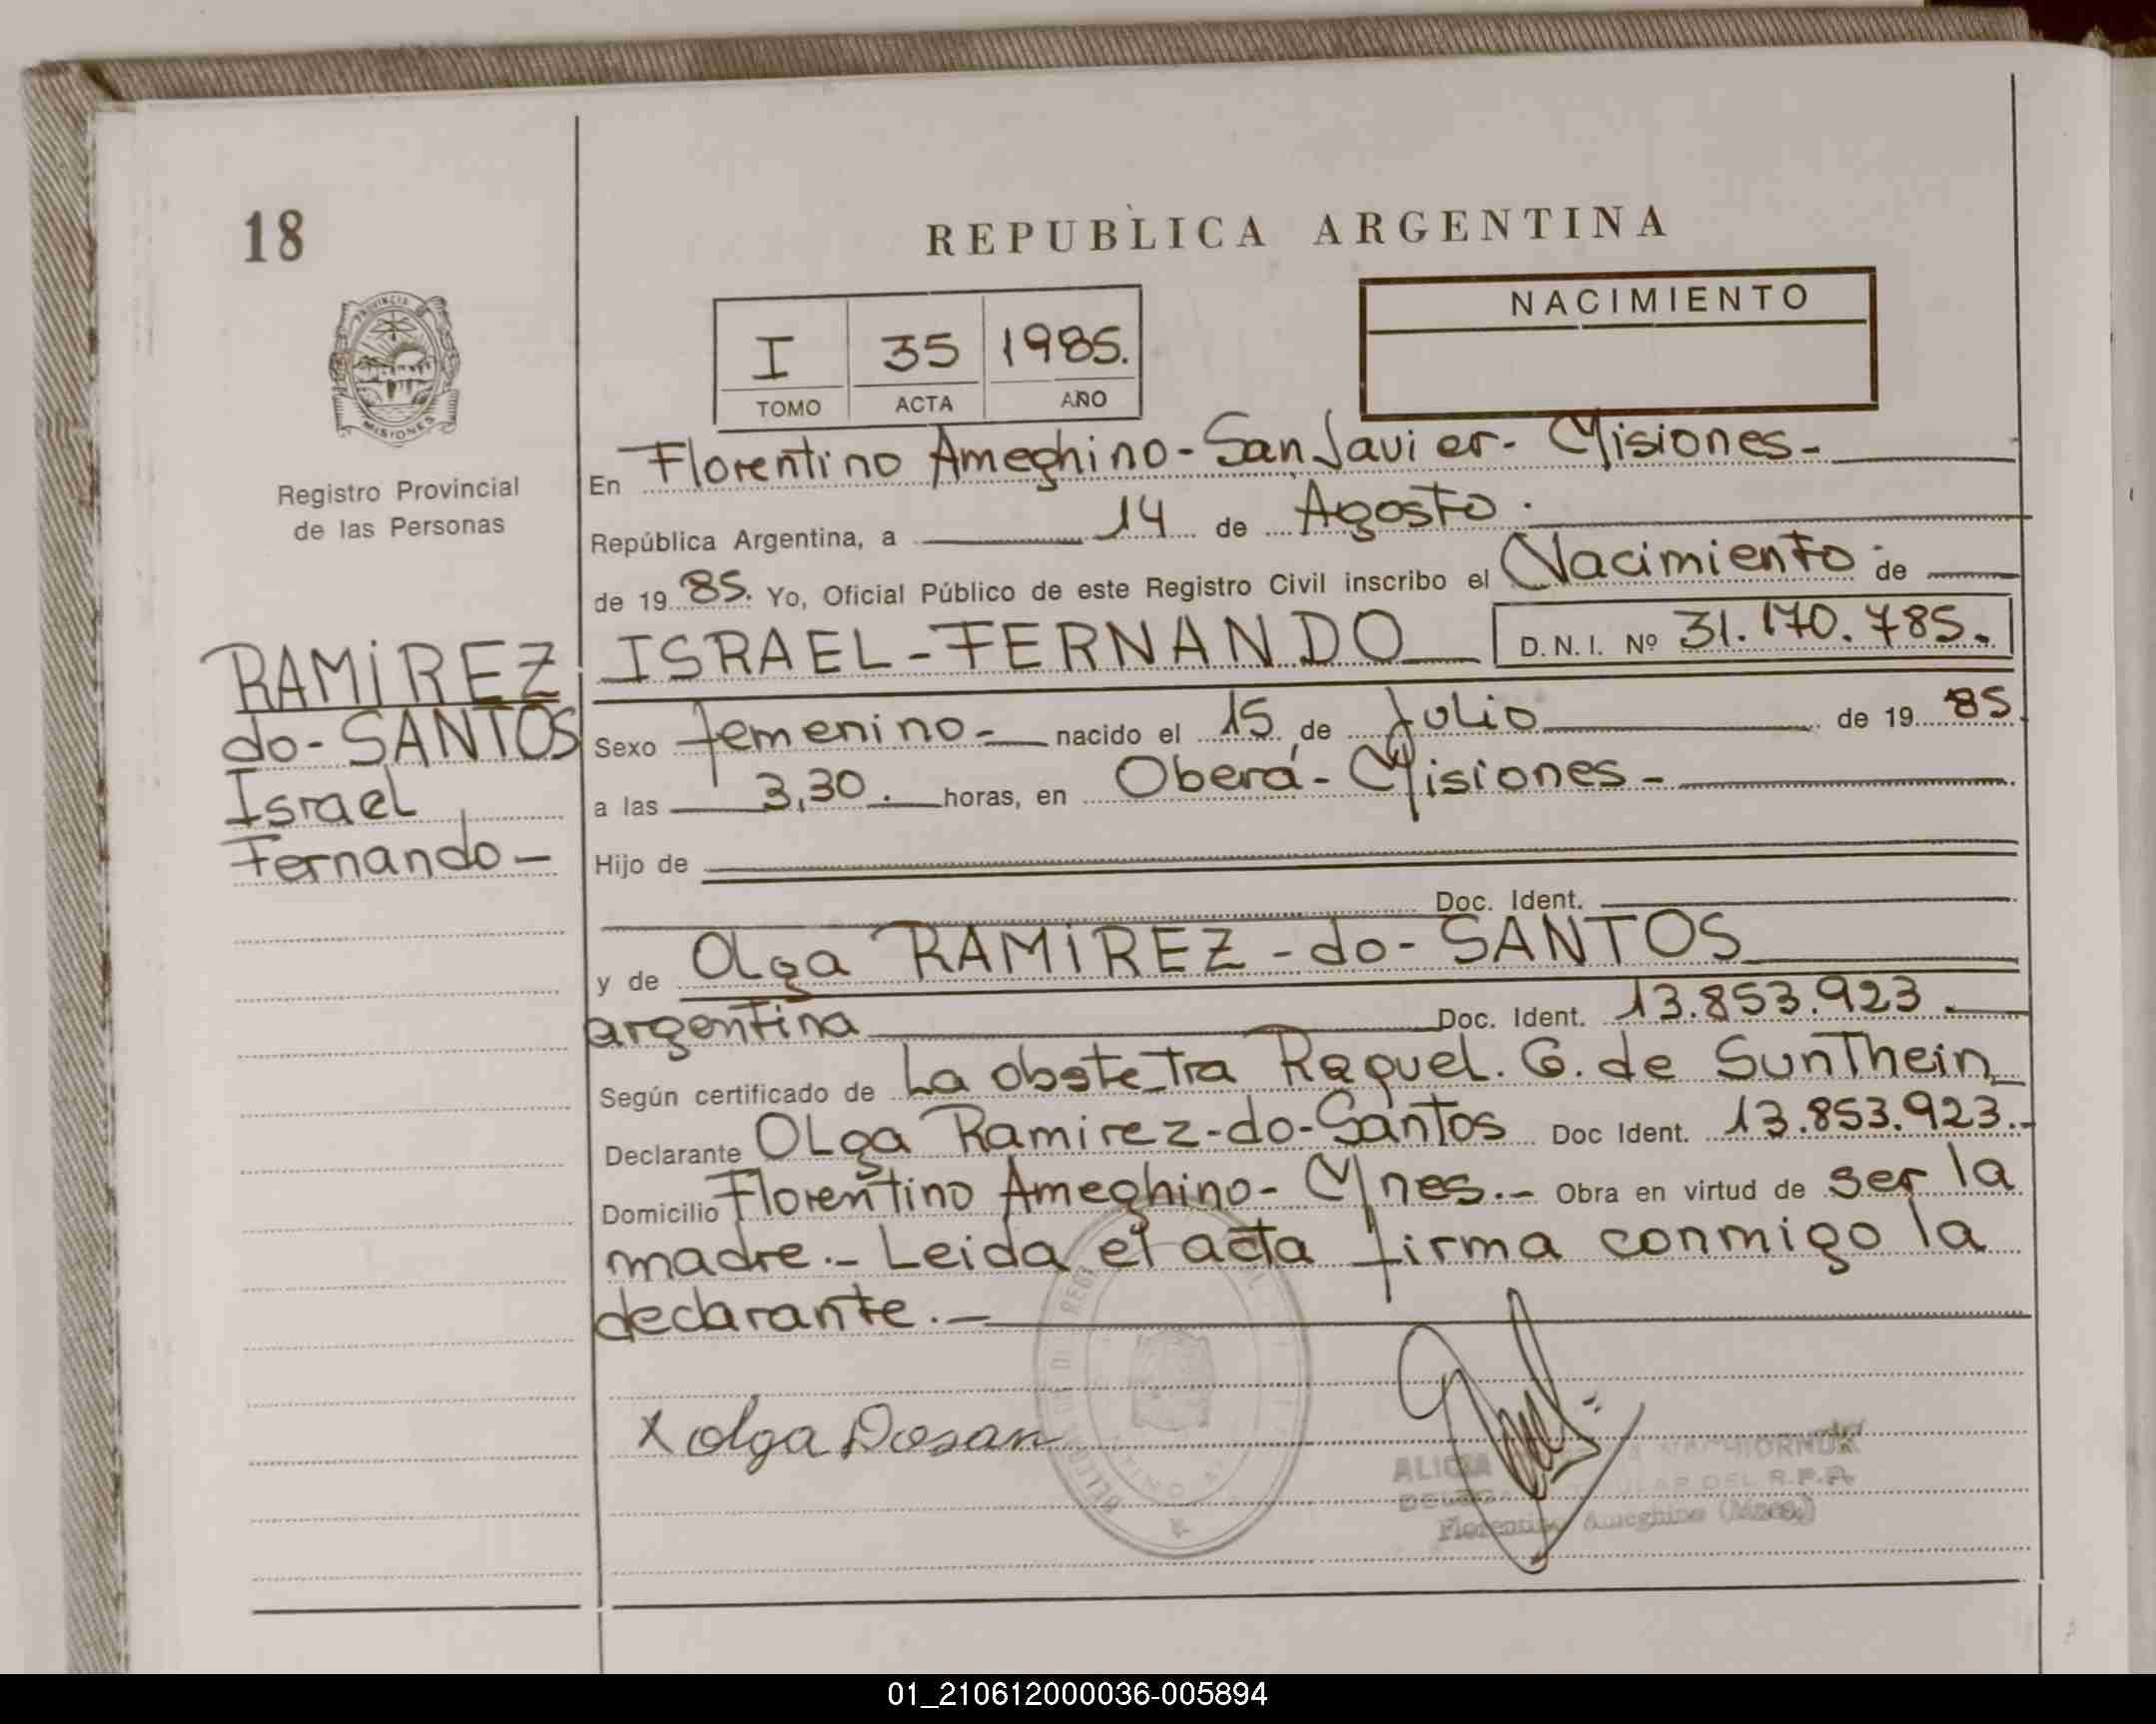 18
REPUBLICA ARGENTINA
PROVINCIA
MISIONES
Registro Provincial
de las Personas
I 35 1985.
TOMO ACTA AÑO
NACIMIENTO
En Florentino Ameghino - San Javier - Misiones -
República Argentina, a 14 de Agosto .
de 19 85. Yo, Oficial Público de este Registro Civil inscribo el Nacimiento de
RAMIREZ
do-SANTOS
Israel
Fernando -
ISRAEL - FERNANDO D. N. I. Nº 31.170.785.
Sexo femenino - nacido el 15 de Julio de 19 85
a las 3,30. horas, en Oberá - Misiones -
Hijo de
Doc. Ident.
y de Olga RAMIREZ - do - SANTOS
argentina Doc. Ident. 13.853.923.
Según certificado de La obstetra Raquel. G. de SunThein
Declarante OLga Ramirez-do-Santos Doc Ident. 13.853.923.-
Domicilio Florentino Ameghino - Mnes.- Obra en virtud de ser la
madre.- Leida el acta firma conmigo la
declarante.-
x olga Dosan
ALICIA
DEL R.P.P.
Florentino Ameghino (Mnes.)
01_210612000036-005894